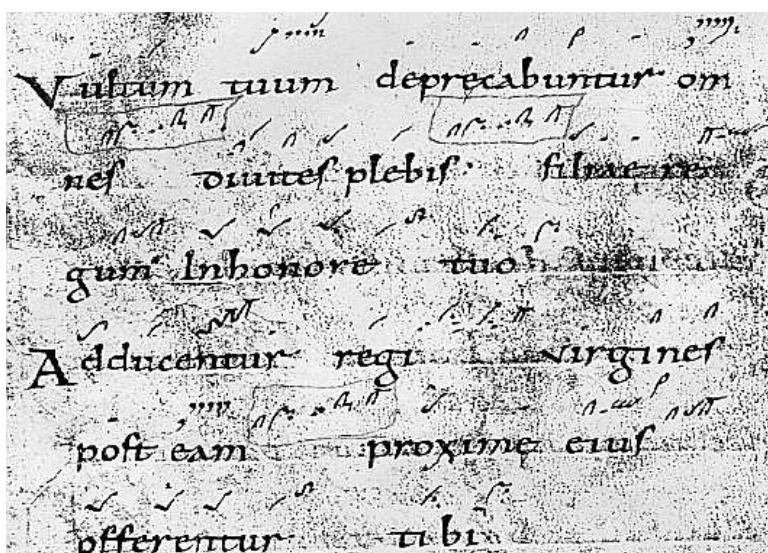 Vultum tuum deprecabuntur om
nes diuites plebis· filiae re
gum Inhonore tuo
Adducentur regi uirgines
post eam proxime eius
offerentur tibi